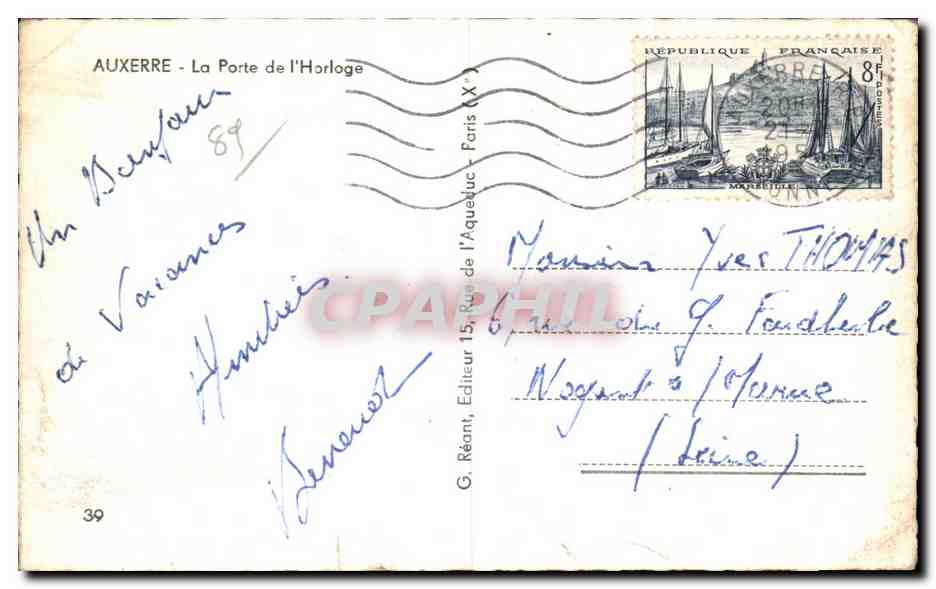 AUXERRE - La Porte de l'Horloge
89
Un Bonjour
de Vacances
Amitiés
39
G. Réant, Editeur 15, Rue de l'Aqueduc - Paris (Xe)
RÉPUBLIQUE FRANÇAISE
8F
POSTES
MARSEILLE
20H
21
195
YONNE
Monsieur Yves THOMAS
6, rue du G. Faidherbe
Nogent s/Marne
(Seine)
CPAPHIL